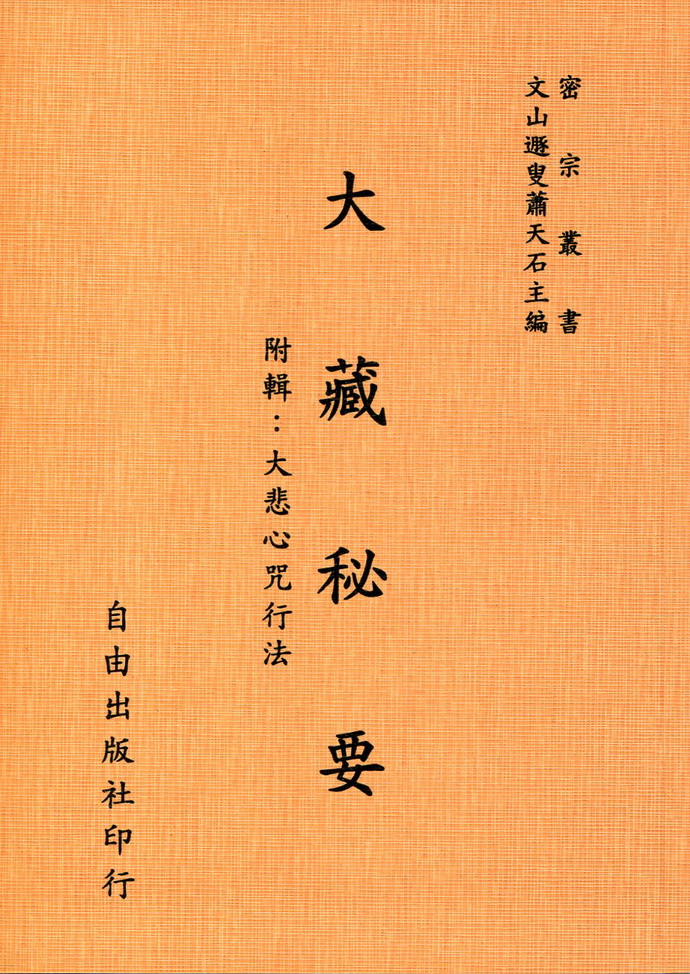 密宗叢書
文山遯叟蕭天石主編
大藏秘要
附輯：大悲心咒行法
自由出版社印行